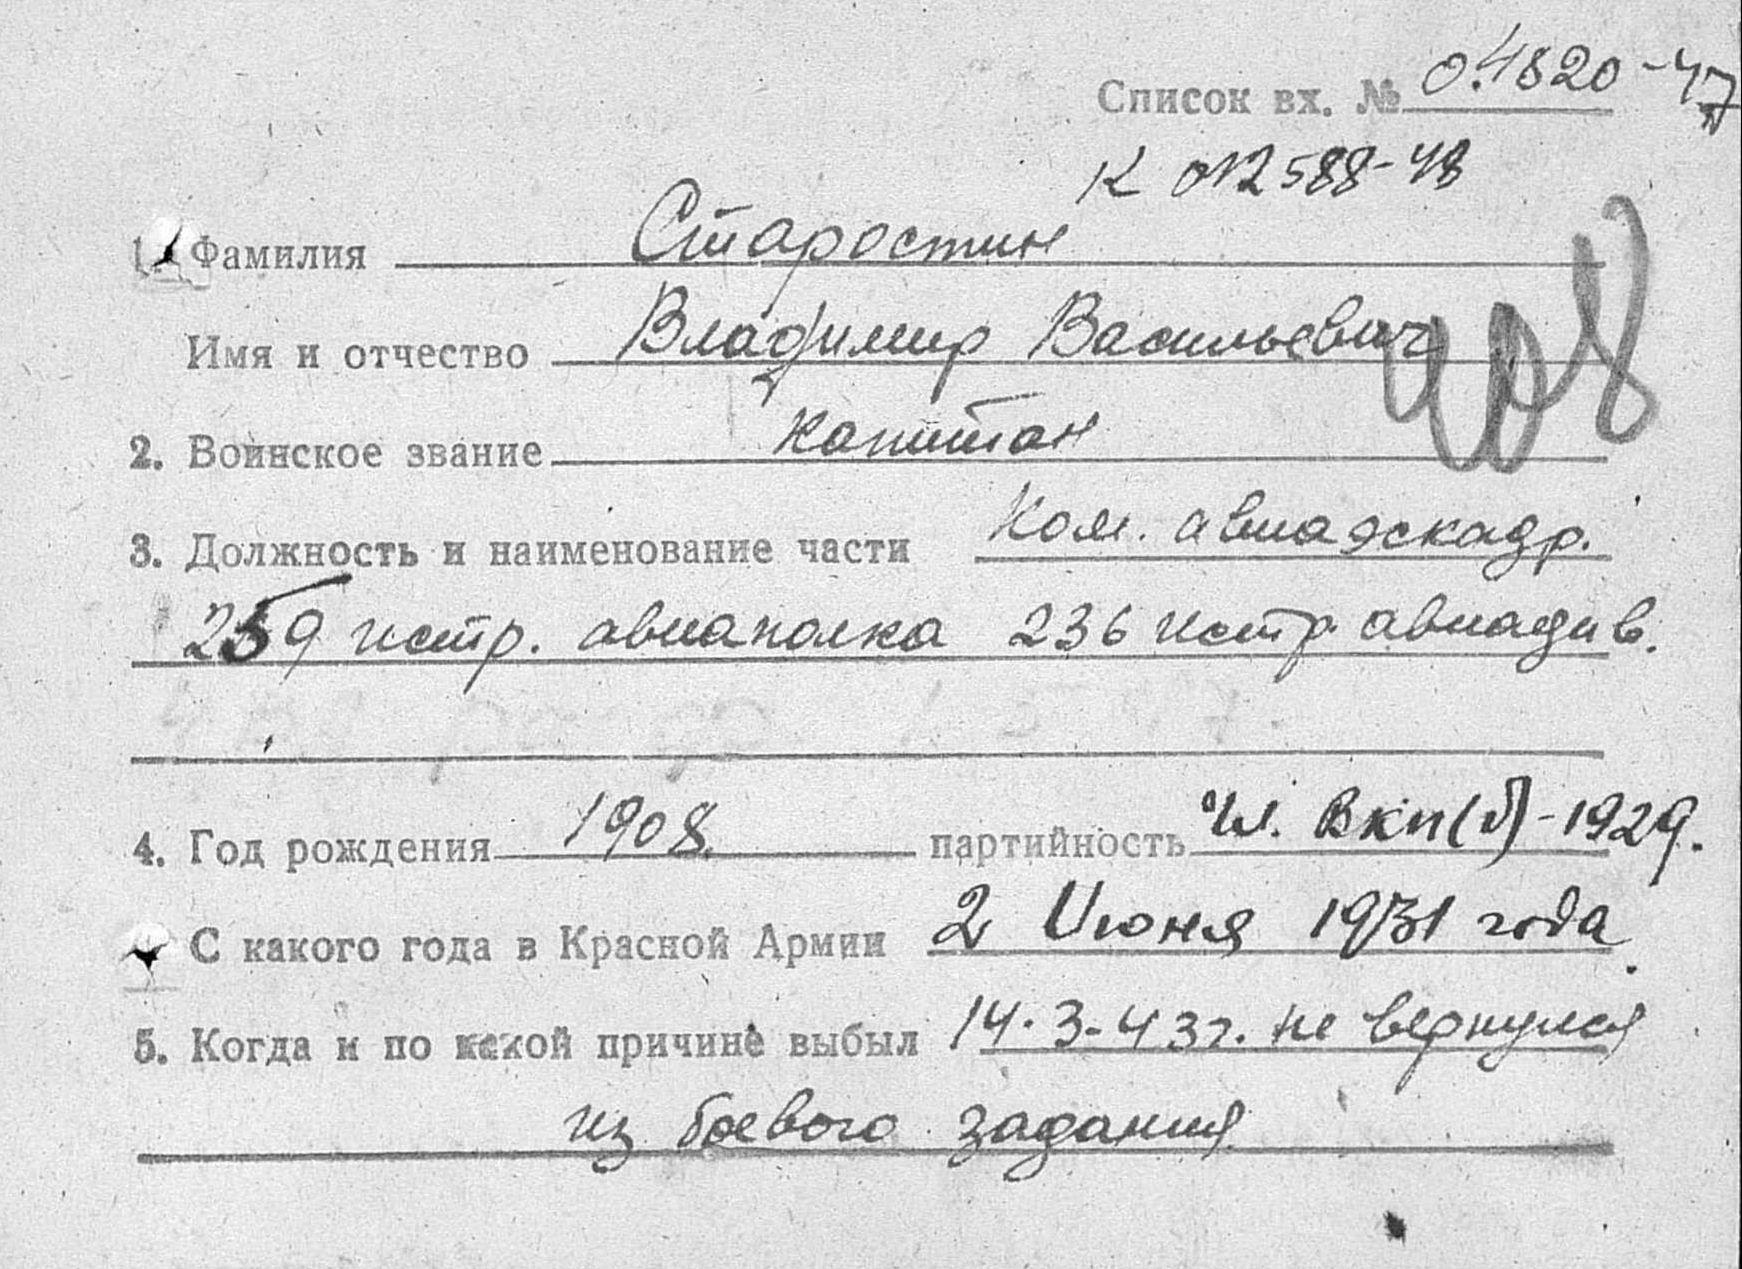 Список вх. № 04820-47
К 012588-48
1. Фамилия Старостин
Имя и отчество Владимир Васильевич
408
2. Воинское звание капитан
3. Должность и наименование части Ком. авиаэскадр.
259 истр. авиаполка 236 истр. авиадив.
4. Год рождения 1908. партийность Чл. ВКП(б)-1929.
С какого года в Красной Армии 2 Июня 1931 года.
5. Когда и по какой причине выбыл 14.3-43г. не вернулся
из боевого задания